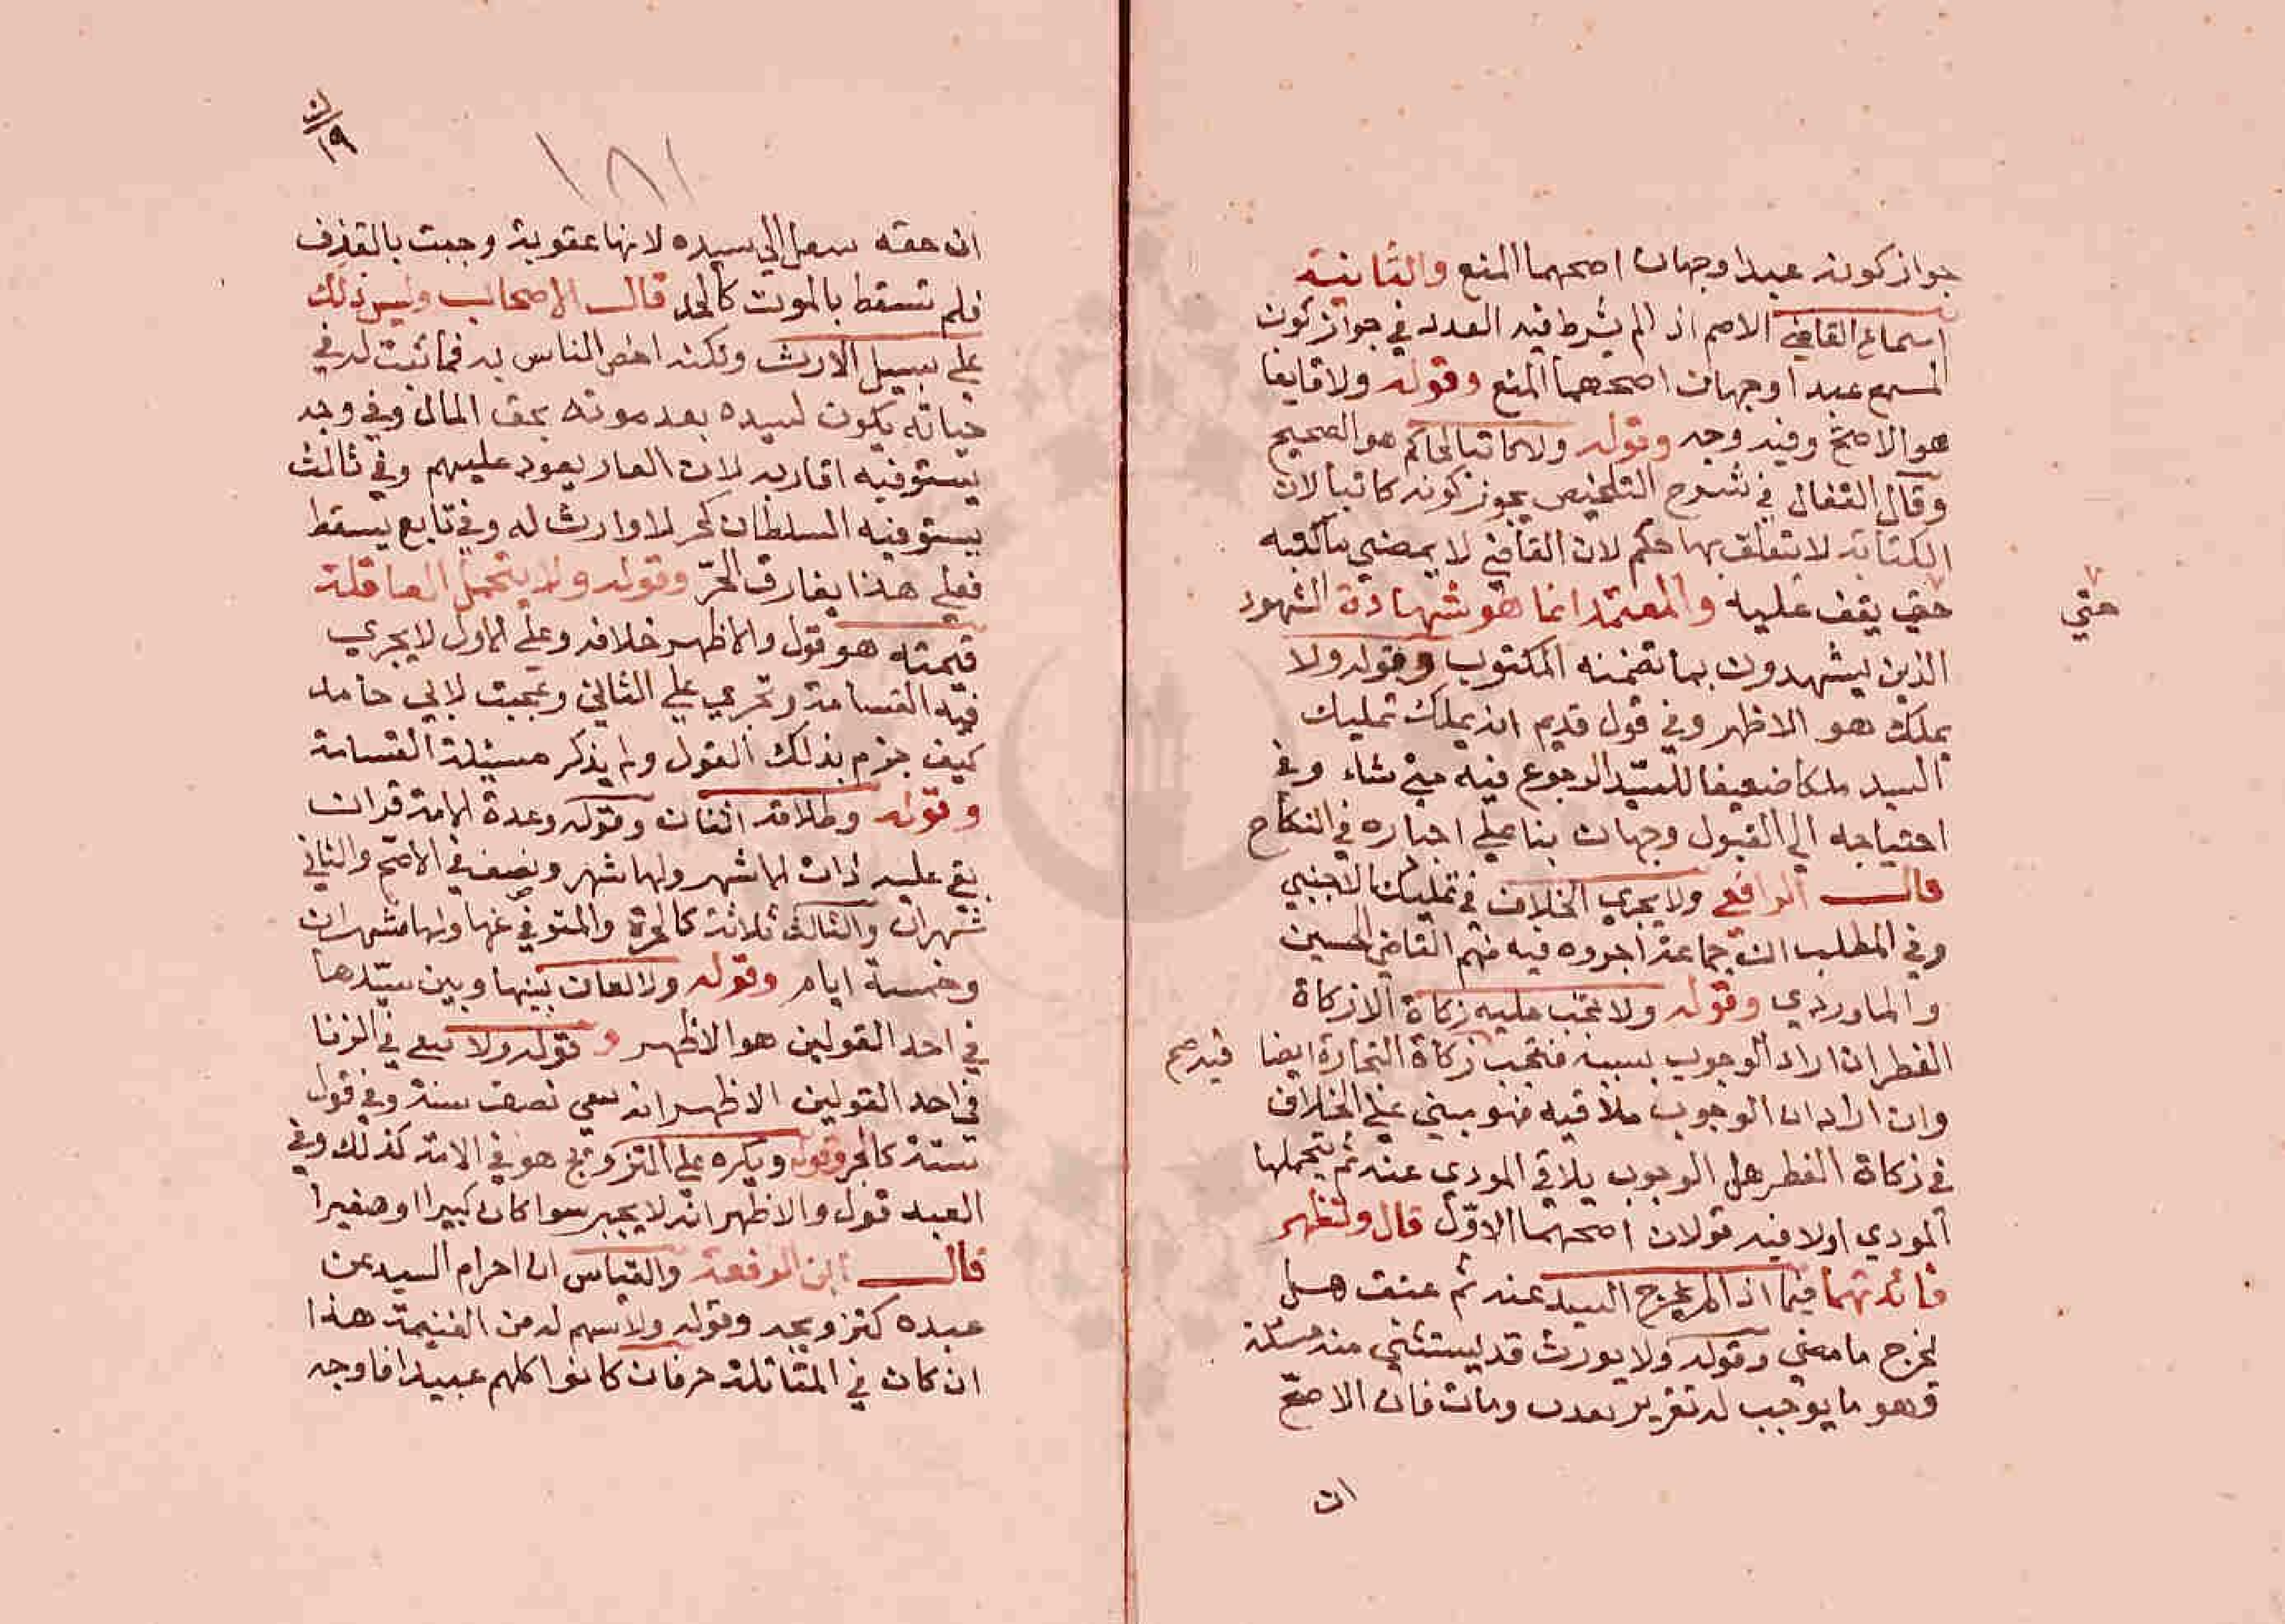 جواز كونه عبدا وجهان اصحهما المنع والثانية
اسماع القاضي الاصم اذ الم يشرط فيه العدد في جواز كون
المسمع عبدا وجهان اصحهما المنع وقوله ولا قايفا
هو الاصح وفيه وجه وقوله ولا كاتبا لحاكم هو الصحيح
وقال القفال في شرح التلخيص يجوز كونه كاتبا لان
الكتابة لا يتعلق بها حكم لان القاضي لا يمضي ما كتبه
حتي يقف عليه والمعتمد انما هو شهادة الشهود
حتي
الذين يشهدون بما تضمنه المكتوب وقوله ولا
يملك هو الاظهر وفي قول قديم انه يملك تمليك
السيد ملكا ضعيفا للسيد الرجوع فيه متي شاء وفي
احتياجه الي القبول وجهان بنا علي اجباره في النكاح
قال الرافعي ولا يجري الخلاف في تمليك الاجنبي
وفي المطلب ان جماعة اجروه فيه منهم القاضي الحسين
والماوردي وقوله ولا تجب عليه زكاة الا زكاة
الفطر ان اراد الوجوب بسببه فتجب زكاة التجارة ايضا فيه صح
وان اراد ان الوجوب ملاقيه فهو مبني علي الخلاف
في زكاة الفطر هل الوجوب يلاقي المودي عنه ثم يتحملها
المودي اولا فيه قولان اصحهما الاول قال وتظهر
فائدتهما فيما اذ الم يخرج السيد عنه ثم عتق هل
يخرج ما مضي وقوله ولا يورث قد يستثني منه مسئلة
وهو ما يوجب له تعزير بعدب ومات فان الاصح
ان
١٨١
ان حقه سعل الي سيده لانها عقوبة وجبت بالقذف
فلم تسقط بالموت كالحد قال الاصحاب وليس ذلك
علي سبيل الارث ولكنه اخص الناس به فما ثبت له في
حياته يكون لسيده بعد موته بحق المال وفي وجه
يستوفيه اقاربه لان العار يعود عليهم وفي ثالث
يستوفيه السلطان كحر لا وارث له وفي رابع يسقط
فعلي هذا يفارق الحر وقوله ولا يتحمل العاقلة
قيمته هو قول والاظهر خلافه وعلي الاول لا يجري
فيه القسامة وتجري علي الثاني وعجبت لابي حامد
كيف جزم بذلك القول ولم يذكر مسئلة القسامة
وقوله وطلاقه اثنان وقوله وعدة الامة قران
بقي عليه ذات الاشهر ولها شهر ونصف في الاصح والثاني
شهران والثالث ثلاثة كالحرة والمتوفي عنها ولها شهران
وخمسة ايام وقوله ولا لعان بينها وبين سيدها
في احد القولين هو الاظهر وقوله ولا ينفي في الزنا
في احد القولين الاظهر انه ينفي نصف سنة وفي قول
سنة كالحر وقوله ويكره علي التزويج هو في الامة كذلك وفي
العبد قول والاظهر انه لا يجبر سوا كان كبيرا او صغيرا
قال ابن الرفعة والقياس ان احرام السيد عن
عبده كتزويجه وقوله ولا يسهم له من الغنيمة هذا
ان كان في المقاتلة حر فان كانوا كلهم عبيدا فاوجه